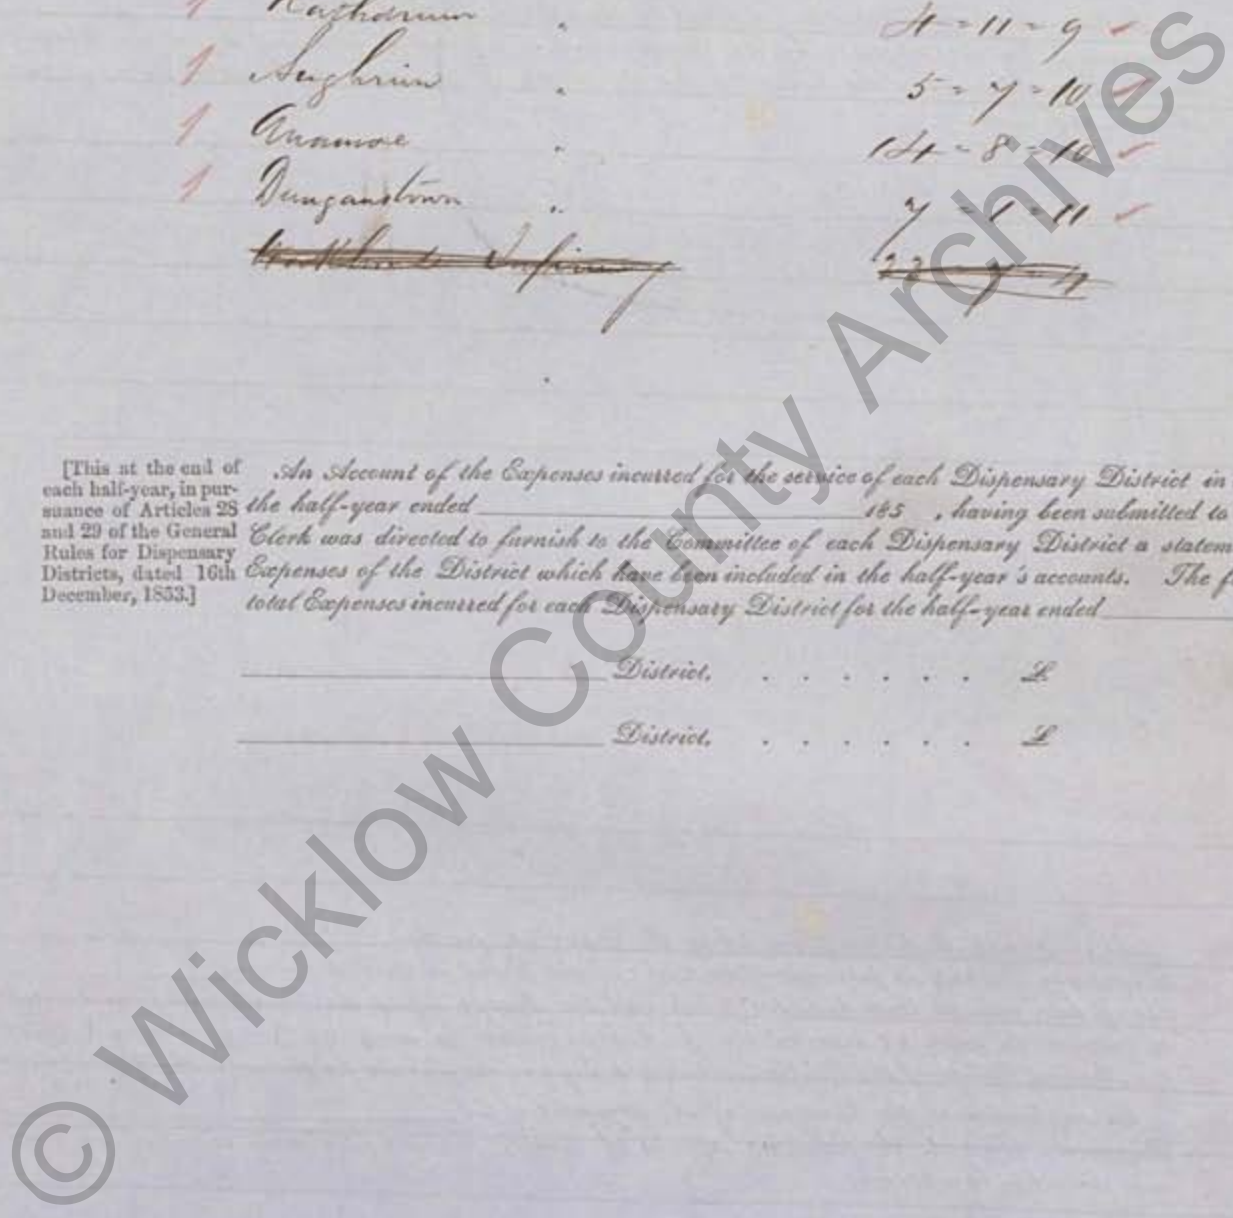 1 Rathdrum " 4 = 11 = 9 ✓
1 Aughrim " 5 = 7 = 10 ✓
1 Anamoe " 14 = 8 = 10 ✓
1 Dunganstown " 7 = 1 = 11 ✓
Workhouse Infirmary
[This at the end of
each half-year, in pur-
suance of Articles 28
and 29 of the General
Rules for Dispensary
Districts, dated 16th
December, 1853.]
An Account of the Expenses incurred for the service of each Dispensary District in
the half-year ended 185 , having been submitted to
Clerk was directed to furnish to the Committee of each Dispensary District a statem
Expenses of the District which have been included in the half-year's accounts. The f
total Expenses incurred for each Dispensary District for the half-year ended
District. . . . . . . £
District. . . . . . . £
© Wicklow County Archives